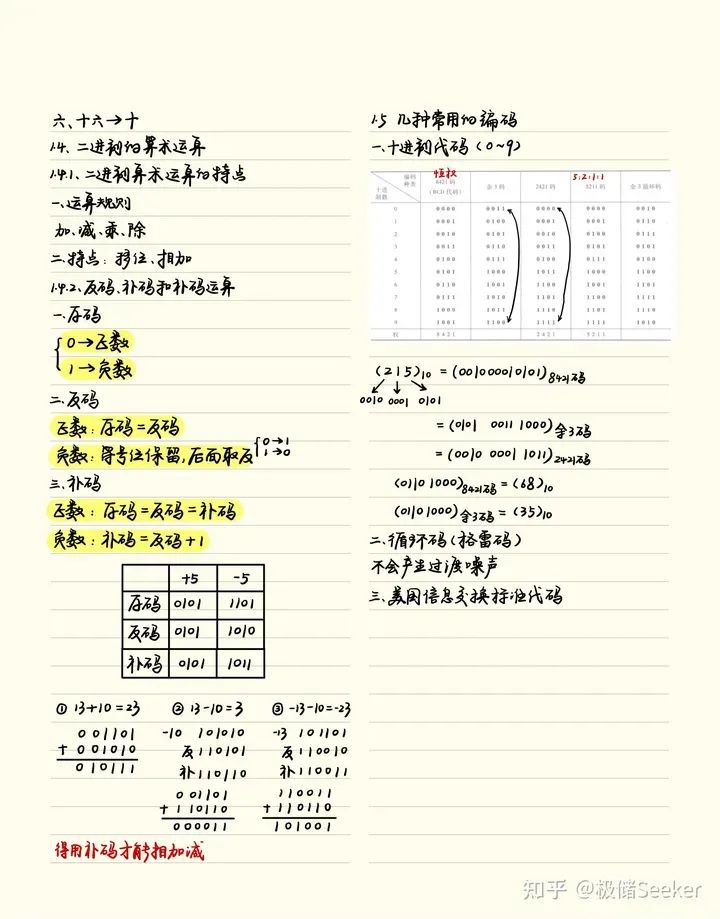 六、十六→十
1.4、二进制的算术运算
1.4.1、二进制算术运算的特点
一、运算规则
加、减、乘、除
二、特点:移位、相加
1.4.2、反码、补码和补码运算
一、原码
0→正数
1→负数
二、反码
正数:原码=反码
负数:符号位保留,后面取反 0→1
1→0
三、补码
正数:原码=反码=补码
负数:补码=反码+1
+5 -5
原码 0101 1101
反码 0101 1010
补码 0101 1011
① 13+10=23
001101
+ 001010
010111
② 13-10=3
-10 101010
反 110101
补 110110
001101
+ 110110
000011
③ -13-10=-23
-13 101101
反 110010
补 110011
110011
+ 110110
101001
得用补码才能相加减
1.5 几种常用的编码
一、十进制代码(0~9)
恒权 5:2:1:1
编码种类 十进制数 8421码(BCD代码) 余3码 2421码 5211码 余3循环码
0 0000 0011 0000 0000 0010
1 0001 0100 0001 0001 0110
2 0010 0101 0010 0100 0111
3 0011 0110 0011 0101 0101
4 0100 0111 0100 0111 0100
5 0101 1000 1011 1000 1100
6 0110 1001 1100 1001 1101
7 0111 1010 1101 1100 1111
8 1000 1011 1110 1101 1110
9 1001 1100 1111 1111 1010
权 8421 2421 5211
(215)10 = (001000010101)8421码
0010 0001 0101
= (0101 0011 1000)余3码
= (0010 0001 1011)2421码
(0110 1000)8421码 = (68)10
(0110 1000)余3码 = (35)10
二、循环码(格雷码)
不会产生过渡噪声
三、美国信息交换标准代码
知乎 @极储Seeker